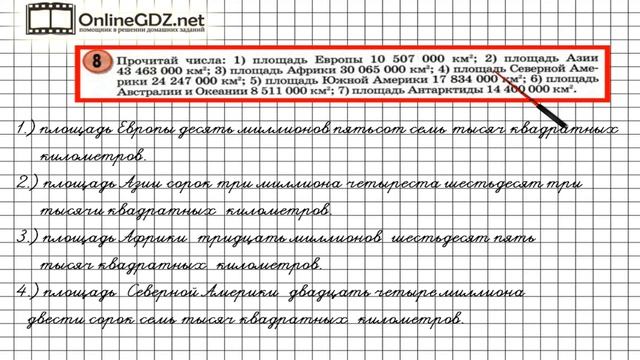 OnlineGDZ.net
помощник в решении домашних заданий
8 Прочитай числа: 1) площадь Европы 10 507 000 км²; 2) площадь Азии
43 463 000 км²; 3) площадь Африки 30 065 000 км²; 4) площадь Северной Аме-
рики 24 247 000 км²; 5) площадь Южной Америки 17 834 000 км²; 6) площадь
Австралии и Океании 8 511 000 км²; 7) площадь Антарктиды 14 400 000 км².
1.) площадь Европы десять миллионов пятьсот семь тысяч квадратных
километров.
2.) площадь Азии сорок три миллиона четыреста шестьдесят три
тысячи квадратных километров.
3.) площадь Африки тридцать миллионов шестьдесят пять
тысяч квадратных километров.
4.) площадь Северной Америки двадцать четыре миллиона
двести сорок семь тысяч квадратных километров.